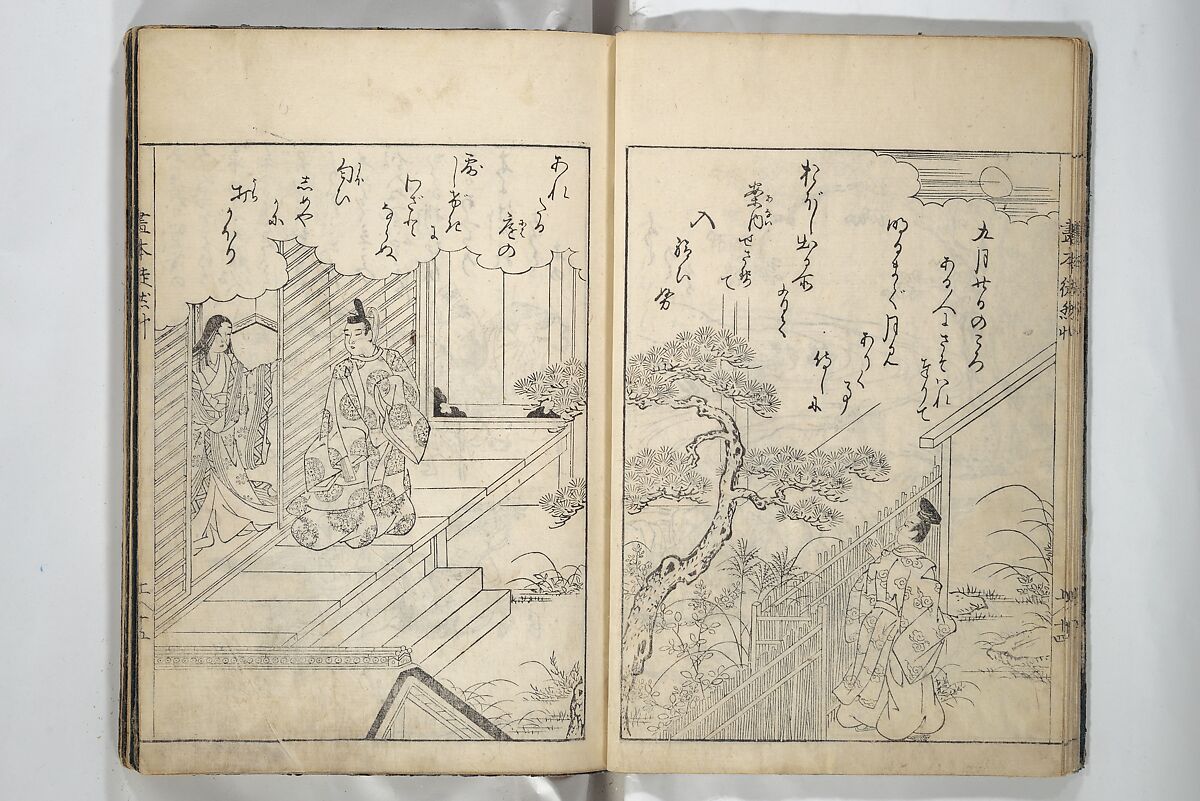 九月廿日のころ
ある人にさそハれ
奉りて
明るまで月見
ありく事
侍しに
おぼし出る所
ありて
案内せさせて
入
給ひぬ
あれたる
庭の
露
しげきに
わざと
ならぬ
匂ひ
しめや
かに
うち
かほり
畫本徒然草
畫本徒然草